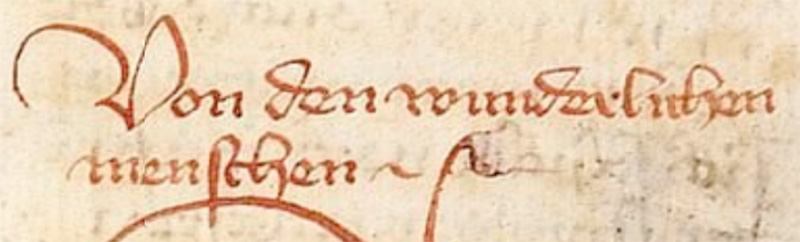 Von den wunderlichen
menschen ~